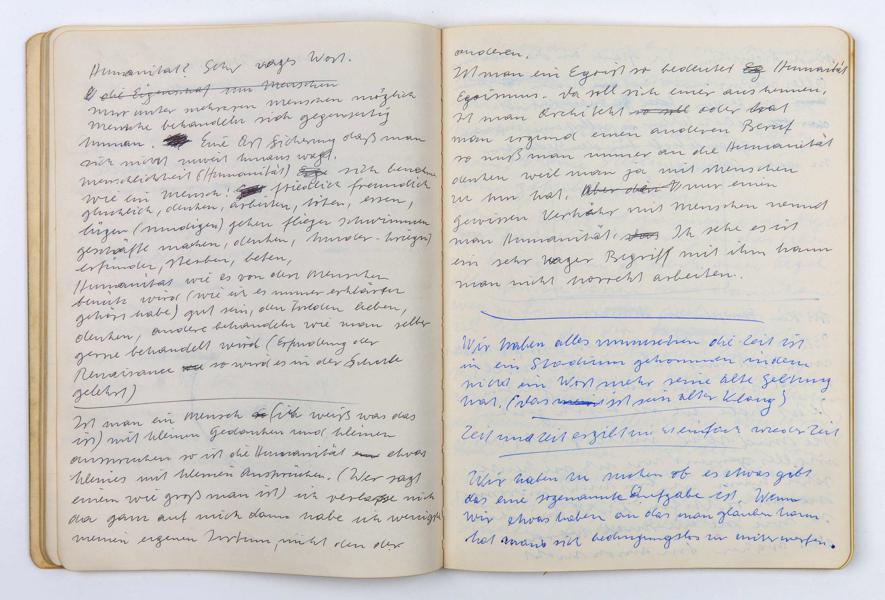 Humanität? Sehr vages Wort.
die Eigenschaft von Menschen
nur unter mehreren menschen möglich
mensche behandeln sich gegenseitig
human. Eine Art Sicherung daß man
sich nicht zuweit hinaus wagt.
menschlichkeit (Humanität) sich benehmen
wie ein Mensch! friedlich freundlich
denken, arbeiten, töten, essen,
lügen (sündigen) gehen fliegen schwimmen
geschäfte machen, denken, kinder-kriegen
erfinden, sterben, beten,
Humanität wie es von den Menschen
benütz wird (wie ich es immer erklären
gehört habe) gut sein, den Frieden lieben,
denken, andere behandeln wie man selber
gerne behandelt wird (Erfindung der
Renaisance so wird es in der Schule
gelehrt)
Ist man ein Mensch (ich weiß was das
ist) mit kleinen Gedanken und kleinen
ansprüchen so ist die Humanität etwas
kleines mit kleinen Ansprüchen. (Wer sagt
einem wie groß man ist) ich verlasse mich
da ganz auf mich dann habe ich wenigstens
meinen eigenen Irrtum, nicht den der
anderen.
Ist man ein Egoist so bedeutet Humanität
Egoismus. Da soll sich einer auskennen,
Ist man Architekt oder hat
man irgend einen anderen Beruf
so muß man immer an die Humanität
denken weil man ja mit Menschen
zu tun hat. nur einen
gewissen Verkehr mit Menschen nennt
man Humanität. Ich sehe es ist
ein sehr vager Begriff mit ihm kann
man nicht korrekt arbeiten.
Wir haben alles die Zeit ist
in ein Stadium gekommen indem
nicht ein Wort mehr seine alte Geltung
hat. (Das ist sein alter Klang)
Zeit und Zeit einfach wieder Zeit
Wir haben zu suchen ob es etwas gibt
das eine sogenannte Aufgabe ist. Wenn
wir etwas haben an das man glauben kann.
hat man sich bedingungslos zu unterwerfen.